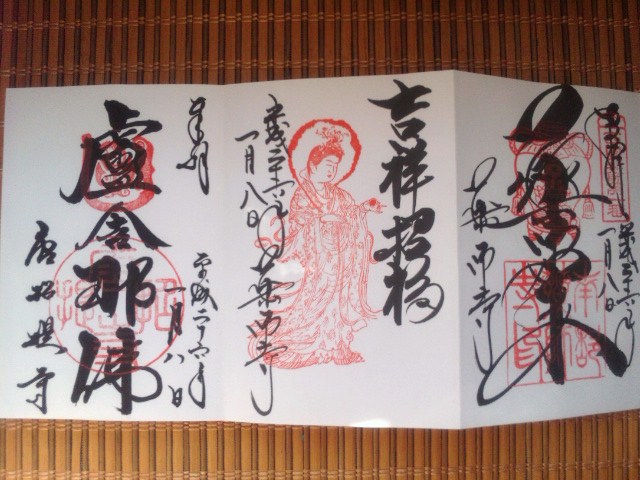 奉拝
平成二十六年
一月八日
薬師如来
薬師寺
吉祥招福
平成二十六年
一月八日
薬師寺
奉拝
平成二十六年
一月八日
盧舎那佛
唐招提寺